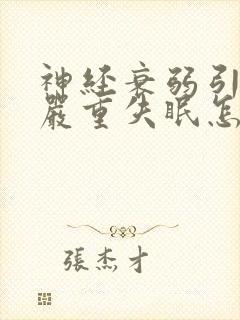 神经衰弱引
嚴重失眠怎
張杰才